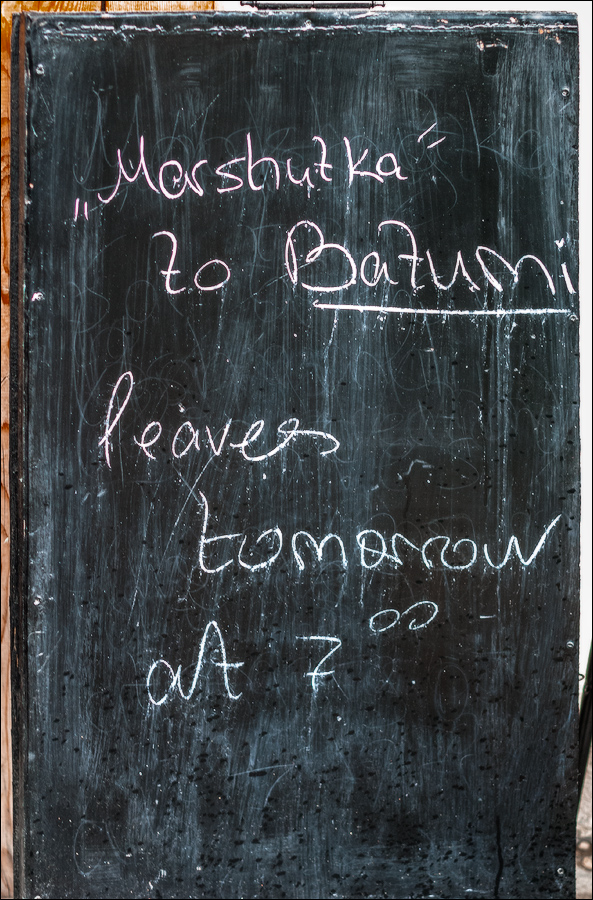 „Marshutka“
to Batumi
leaves
tomorrow
at 7⁰⁰